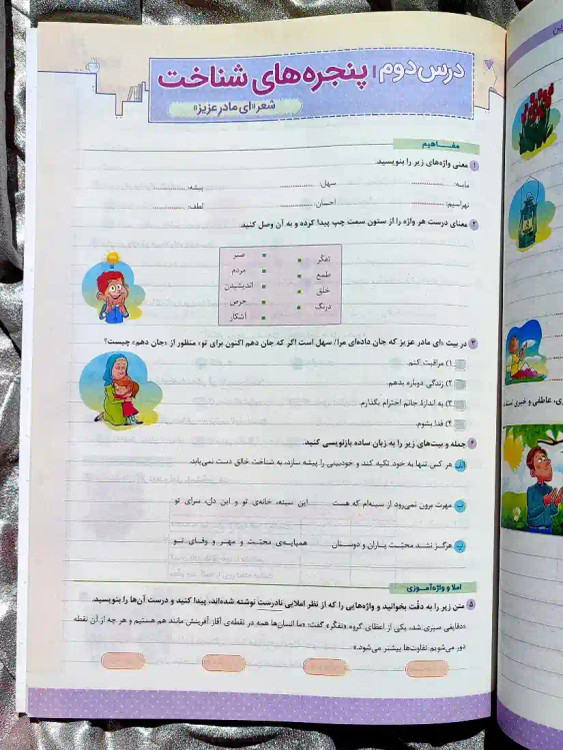 درس دوم | پنجره‌های شناخت
شعر «ای مادر عزیز»
مفـاهیم
۱ معنی واژه‌های زیر را بنویسید.
مایه: سهل: پیشه:
نهراسیم: احسان: لطف:
۲ معنای درست هر واژه را از ستون سمت چپ پیدا کرده و به آن وصل کنید.
تفکّر صبر
طمع مردم
خلق اندیشیدن
درنگ حرص
آشکار
۳ در بیت «ای مادر عزیز که جان داده‌ای مرا/ سهل است اگر که جان دهم اکنون برای تو» منظور از «جان دهم» چیست؟
۱) مراقبت کنم.
۲) زندگی دوباره بدهم.
۳) به اندازهٔ جانم احترام بگذارم.
۴) فدا بشوم.
۴ جمله و بیت‌های زیر را به زبان ساده بازنویسی کنید.
الف هر کس تنها به خود تکیه کند و خودبینی را پیشه سازد، به شناخت خالق دست نمی‌یابد.
ب مهرت برون نمی‌رود از سینه‌ام که هست این سینه، خانه‌ی تو و این دل، سرای تو
پ هرگز نشد محبّت یاران و دوستان همپایه‌ی محبّت و مهر و وفای تو
املا و واژه‌آموزی
۵ متن زیر را به دقّت بخوانید و واژه‌هایی را که از نظر املایی نادرست نوشته شده‌اند، پیدا کنید و درست آن‌ها را بنویسید.
«دقایقی سپری شد، یکی از اعظای گروه «تفکّر» گفت: «ما انسان‌ها همه در نقطه‌ی آغاز آفرینش مانند هم هستیم و هر چه از آن نقطه
دور می‌شویم تفاوت‌ها بیشتر می‌شود.»
ی، عاطفی و خبری